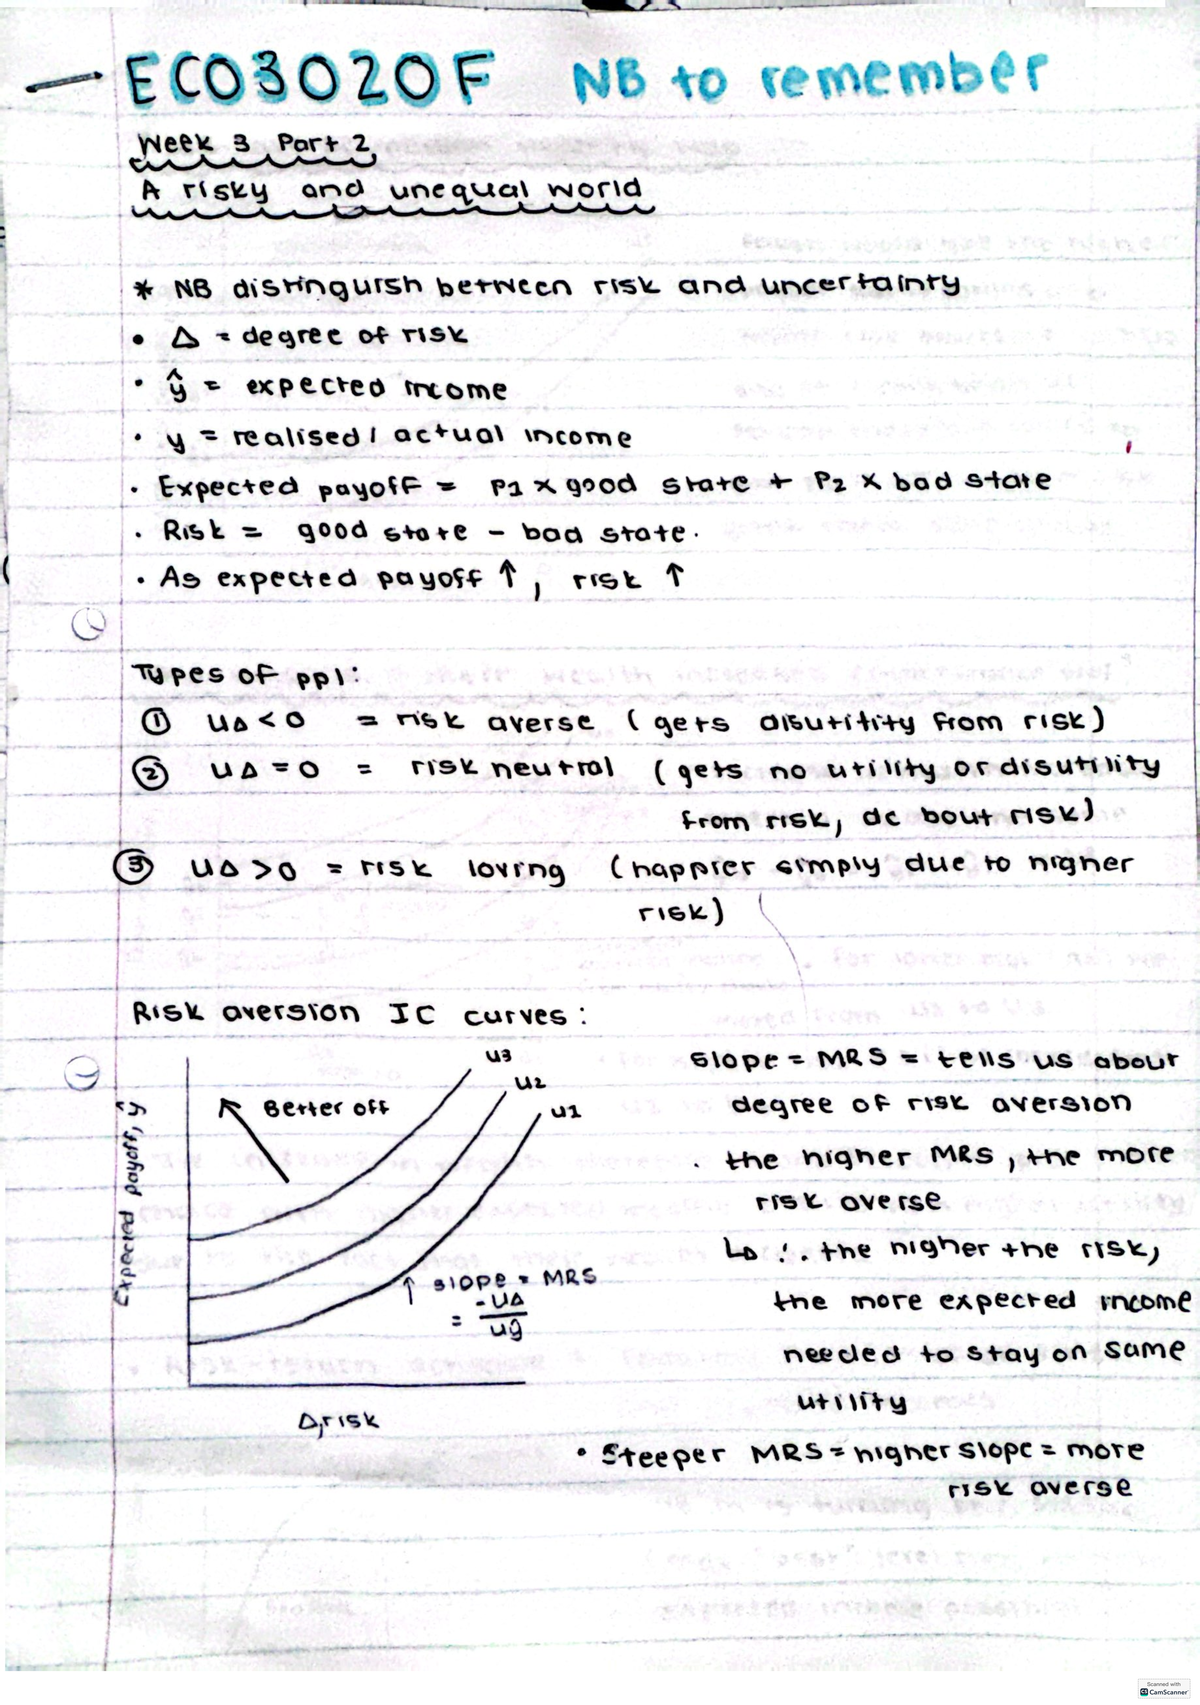 ECO3020F NB to remember
Week 3 Part 2
A risky and unequal world
* NB distinguish between risk and uncertainty
• Δ = degree of risk
• ŷ = expected income
• y = realised / actual income
• Expected payoff = P1 x good state + P2 x bad state
• Risk = good state - bad state.
• As expected payoff ↑, risk ↑
Types of ppl:
① uΔ < 0 = risk averse (gets disutitity from risk)
② uΔ = 0 = risk neutral (gets no utility or disutility
from risk, dc bout risk)
③ uΔ > 0 = risk loving (happier simply due to higher
risk)
Risk aversion IC curves:
u3
u2
u1
Better off
Expected payoff, ŷ
slope = MRS
= -uΔ
uŷ
Δ, risk
slope = MRS = tells us about
degree of risk aversion
. the higher MRS, the more
risk averse
↳ ∴ the higher the risk,
the more expected income
needed to stay on same
utility
• Steeper MRS = higher slope = more
risk averse
Scanned with
CS CamScanner